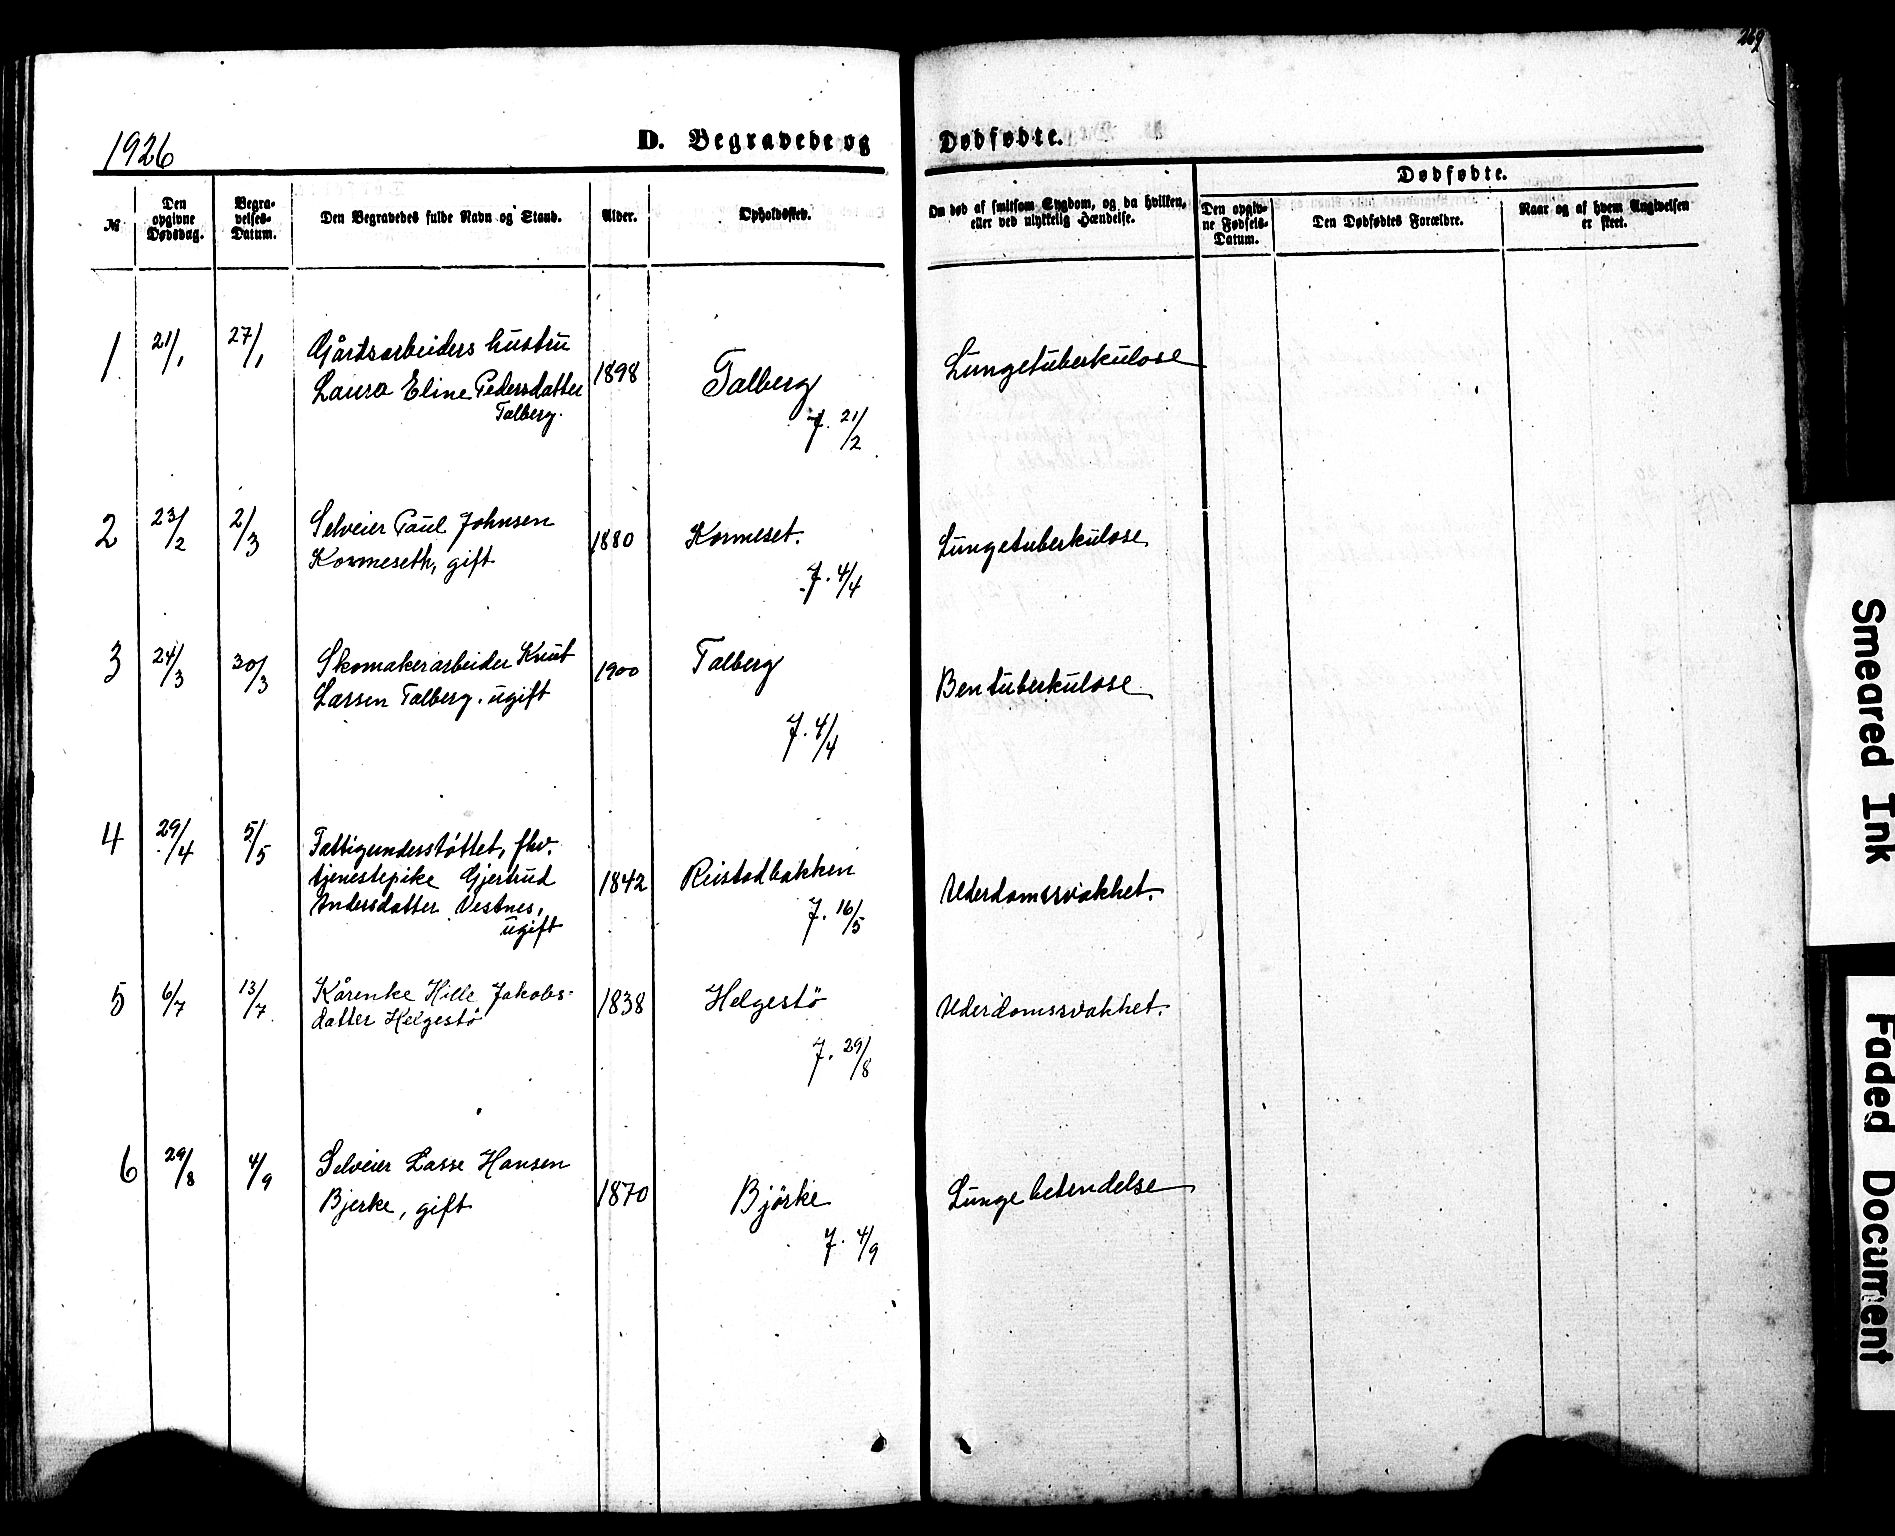 269
1926
D. Begravede og Dødfødte.
№
Den opgivne Dødsdag.
Begravelses-Datum.
Den Begravedes fulde Navn og Stand.
Alder.
Opholdssted.
Om død af smitsom Sygdom, og da hvilken, eller ved ulykkelig Hændelse.
Dødfødte.
Den opgivne Fødsels-Datum.
Den Dødfødtes Forældre.
Naar og af hvem Angivelsen er skeet.
1 21/1 27/1 Gårdsarbeiders hustru
Laura Eline Pedersdatter 1898 Talberg Lungetuberkulose
Talberg. J. 21/2
2 23/2 2/3 Selveier Paul Johnsen 1880 Kormeset. Lungetuberkulose
Kormeseth, gift J. 4/4
3 24/3 30/3 Skomakerarbeider Knut 1900 Talberg Bentuberkulose
Larsen Talberg. ugift
J. 4/4
4 29/4 5/5 Fattigunderstøttet, fhv.
tjenestepike Gjertrud 1842 Reistadbakken Alderdomssvakhet.
Andersdatter Vestnes, J. 16/5
ugift
5 6/7 13/7 Kårenke Hille Jakobs- 1838 Helgestö Alderdomssvakhet.
datter Helgestö
J. 29/8
6 29/8 4/9 Selveier Lasse Hansen
Bjerke, gift 1870 Björke Lungebetendelse
J. 4/9
Smeared Ink
Faded Document